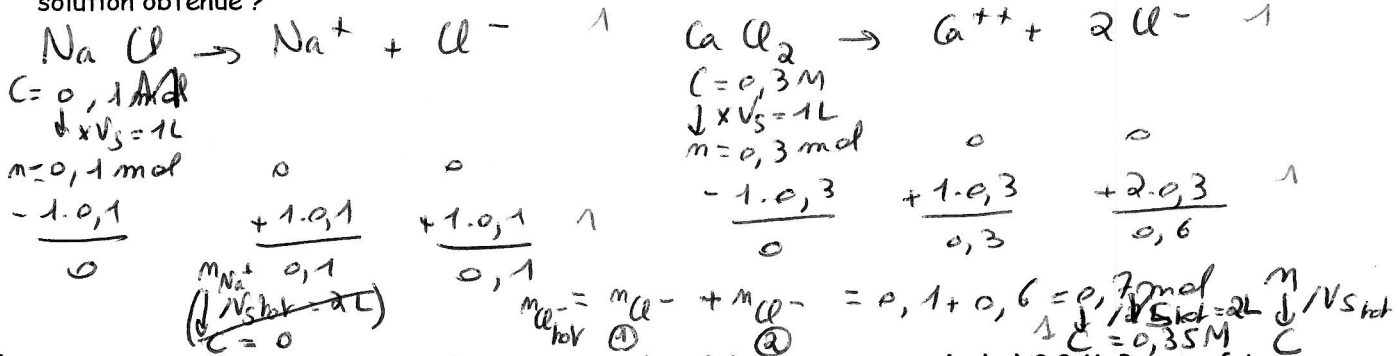 solution obtenue ?
Na Cl → Na⁺ + Cl⁻ 1
C = 0,1
↓ x Vs = 1L
n = 0,1 mol 0 0
- 1.0,1 + 1.0,1 + 1.0,1 1
0 0,1 0,1
n Na⁺
(↓ /Vs tot = 2L)
C = 0
Ca Cl₂ → Ca⁺⁺ + 2 Cl⁻ 1
C = 0,3 M
↓ x Vs = 1L
n = 0,3 mol 0 0
- 1.0,3 + 1.0,3 + 2.0,3 1
0 0,3 0,6
n Cl⁻ tot = n Cl⁻ ① + n Cl⁻ ② = 0,1 + 0,6 = 0,7 mol
↓ /Vs tot = 2L
1 C = 0,35 M
n
↓ /Vs tot
C